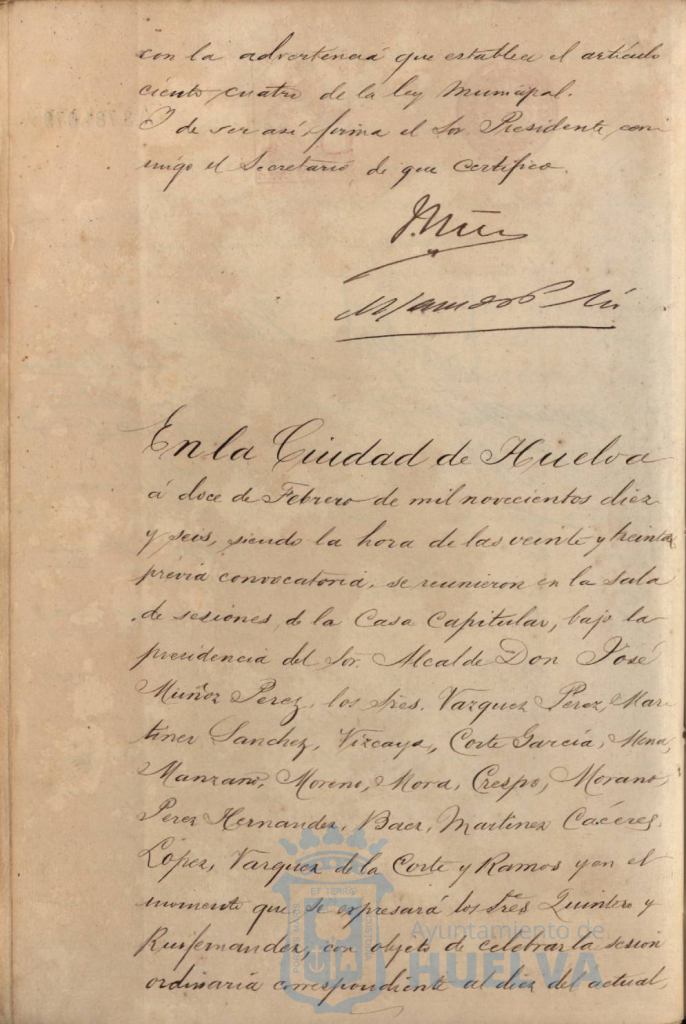 con la advertencia que establece el artículo
ciento cuatro de la ley Municipal.
Y de ser así, firma el Sor. Presidente con-
migo el Secretario de que certifico.
En la Ciudad de Huelva
á doce de Febrero de mil novecientos diez
y seis, siendo la hora de las veinte y treinta
prévia convocatoria, se reunieron en la Sala
de sesiones de la Casa Capitular, bajo la
presidencia del Sor. Alcalde Don José
Muñoz Perez, los Sres. Vazquez Perez, Mar-
tinez Sanchez, Vizcaya, Corte García, Mena,
Manzano, Moreno, Mora, Crespo, Morano,
Perez Hernandez, Baez, Martinez Cáceres,
López, Vazquez de la Corte y Ramos y en el
momento que se expresará los Sres Quintero y
Ruifernandez, con objeto de celebrar la sesion
ordinaria correspondiente al diez del actual,
Ayuntamiento de
HUELVA